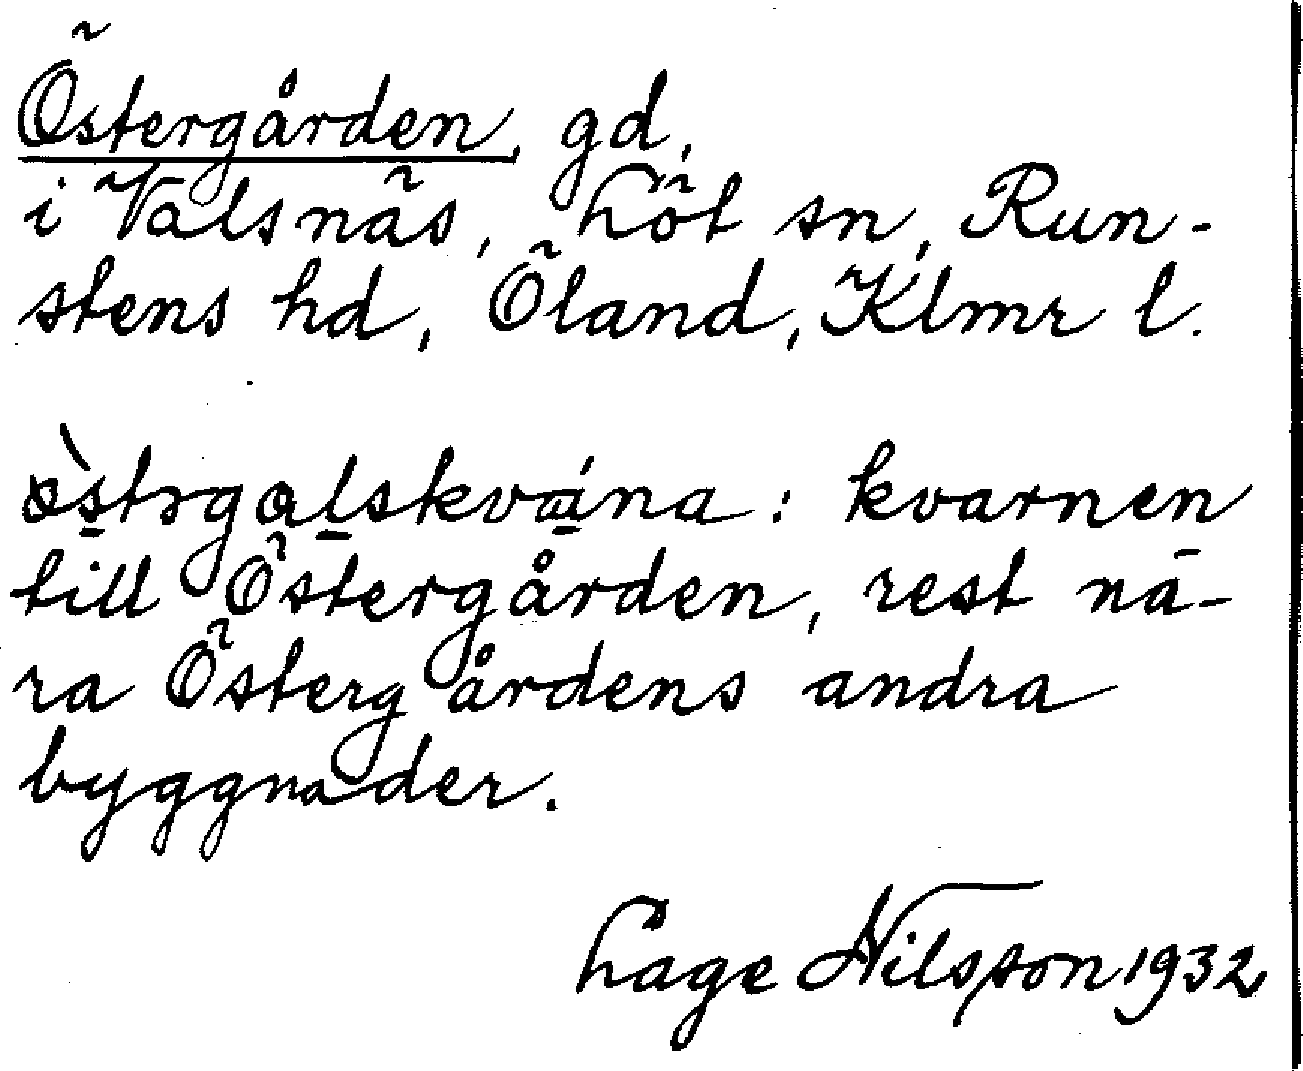 Östergården, gd,
i Valsnäs, Löt sn, Run-
stens hd, Öland, Klmr l.
kvarnen
till Östergården, rest nä-
ra Östergårdens andra
byggnader.
Lage Nilsson 1932